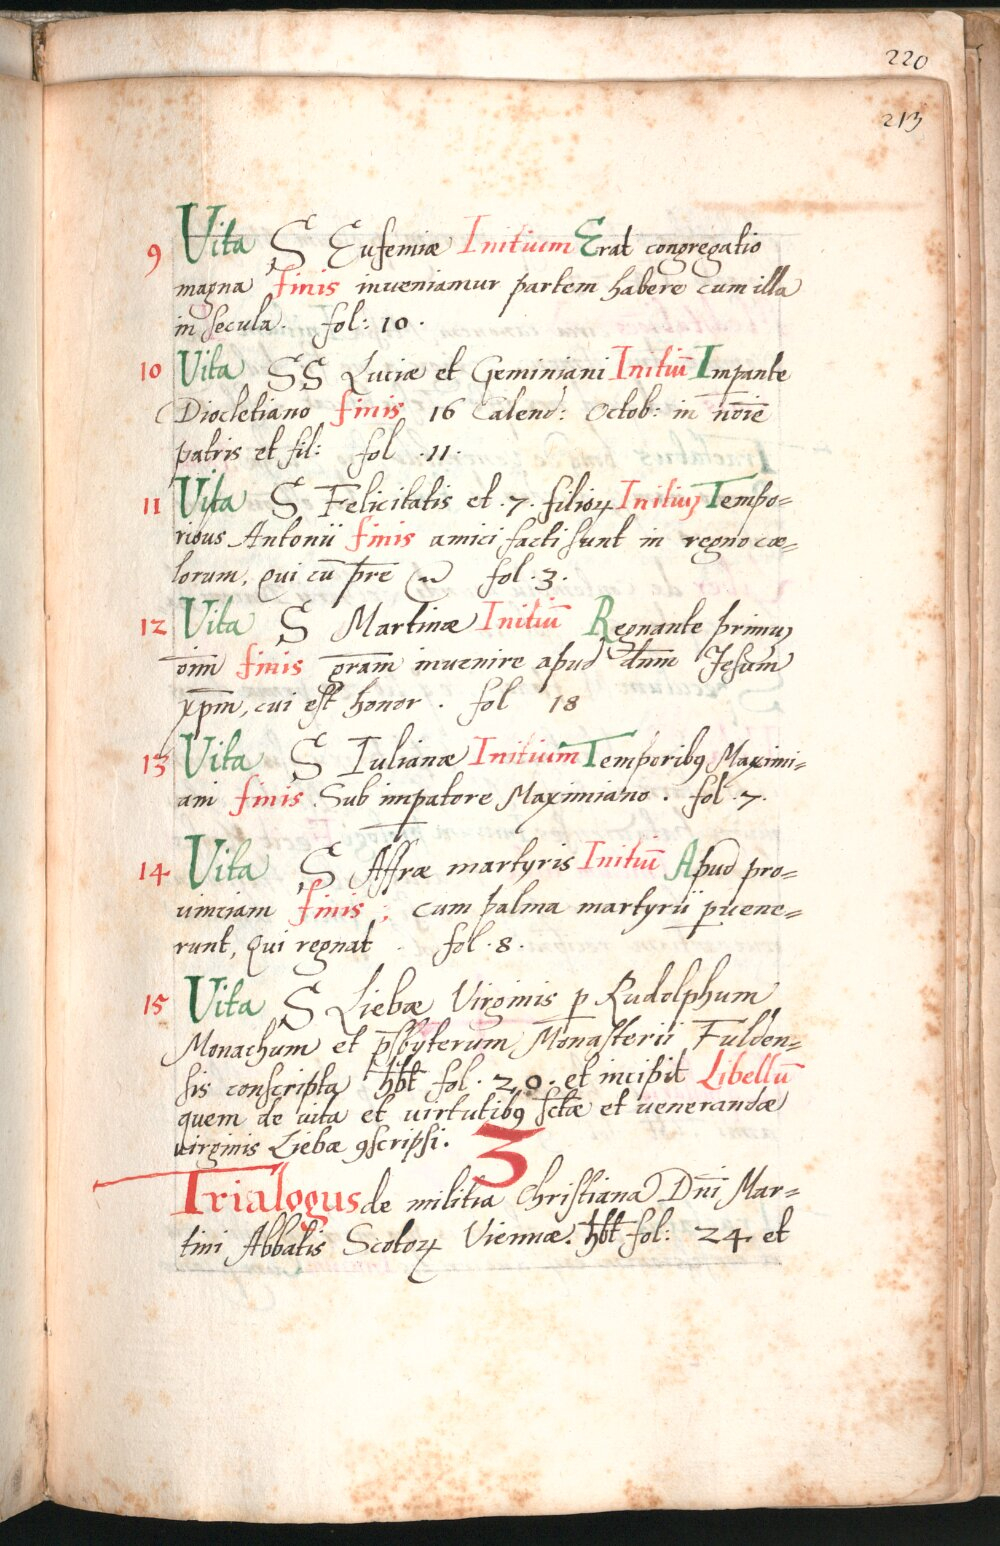 220
213
9 Vita S Eufemiæ Initium Erat congregatio
magna finis inveniamur partem habere cum illa
in secula. fol: 10.
10 Vita SS Luciæ et Geminiani Initiū Impante
Diocletiano finis 16 Calend: Octob: in nōie
patris et fil: fol .11.
11 Vita S Felicitatis et .7. filioꝝ Initiuȝ Tempo=
ribus Antonii finis amici facti sunt in regno cæ=
lorum, qui cū pr̄e fol .3.
12 Vita S Martinæ Initiū Regnante primuȝ
oīm finis gr̄am invenire apud dnm̄ Jesum
xp̄m, cui est honor. fol 18
13 Vita S Iulianæ Initium Temporibꝯ Maximi=
ani finis Sub imꝑatore Maximiano. fol .7.
14 Vita S Affræ martyris Initiū Apud pro=
vinciam finis; cum palma martyrii ꝑvene=
runt, Qui regnat. fol .8.
15 Vita S Liebæ Virginis ꝑ Rudolphum
Monachum et p̄sbyterum Monasterii Fulden=
sis conscripta hb̄t fol .20. et incipit Libellū
quem de vita et virtutibꝯ sctæ et venerandæ
virginis Liebæ ꝯscripsi.
3
Trialogus de militia Christiana Dn̄i Mar=
tini Abbatis Scotoꝝ Viennæ. hb̄t fol: 24 et